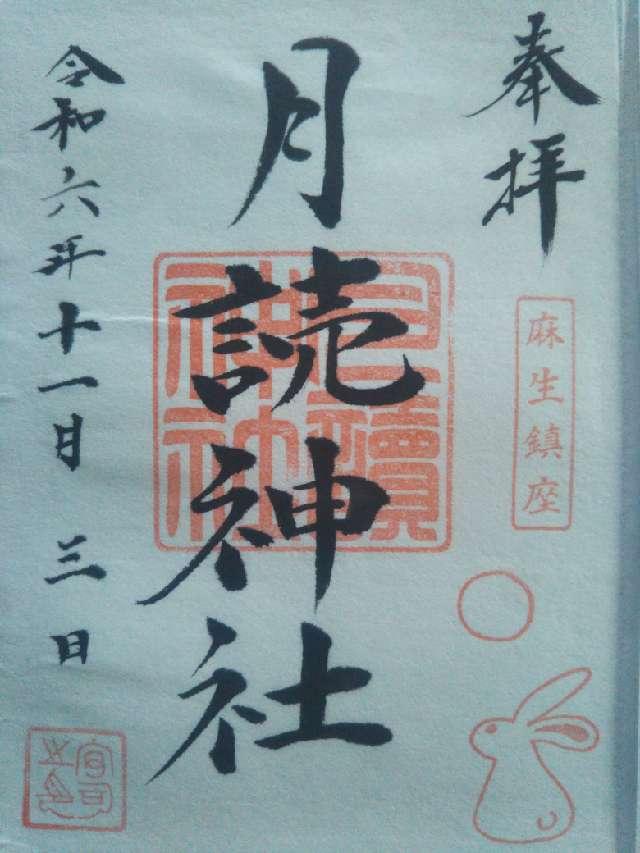 奉拝
麻生鎮座
月読神社
月讀神社
令和六年十一月 三日
宮司之印